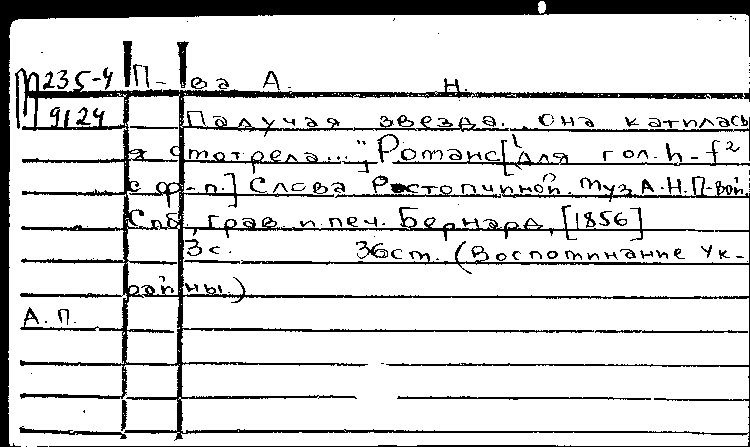 М 235-4 П-ва А. Н.
9124 Падучая звезда. „Она катилась
я смотрела...", Романс [для гол. h-f²
с ф-п.] Слова Растопчиной. Муз. А.Н.П-вой.
Спб, грав. и печ. Бернард, [1856]
3 с. 36 ст. (Воспоминание Ук-
райны.)
А. П.